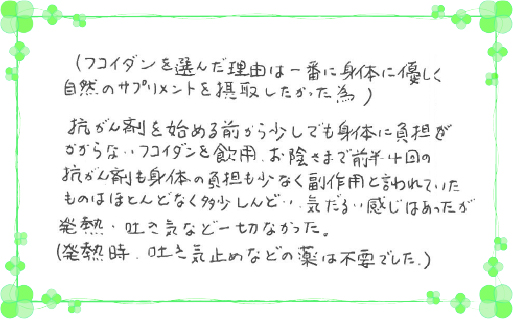 (フコイダンを選んだ理由は一番に身体に優しく
自然のサプリメントを摂取したかった為)
抗がん剤を始める前から少しでも身体に負担が
かからないフコイダンを飲用。お陰さまで前半4回の
抗がん剤も身体の負担も少なく副作用と言われていた
ものはほとんどなく多少しんどい、気だるい感じはあったが
発熱・吐き気など一切なかった。
(発熱時、吐き気止めなどの薬は不要でした。)